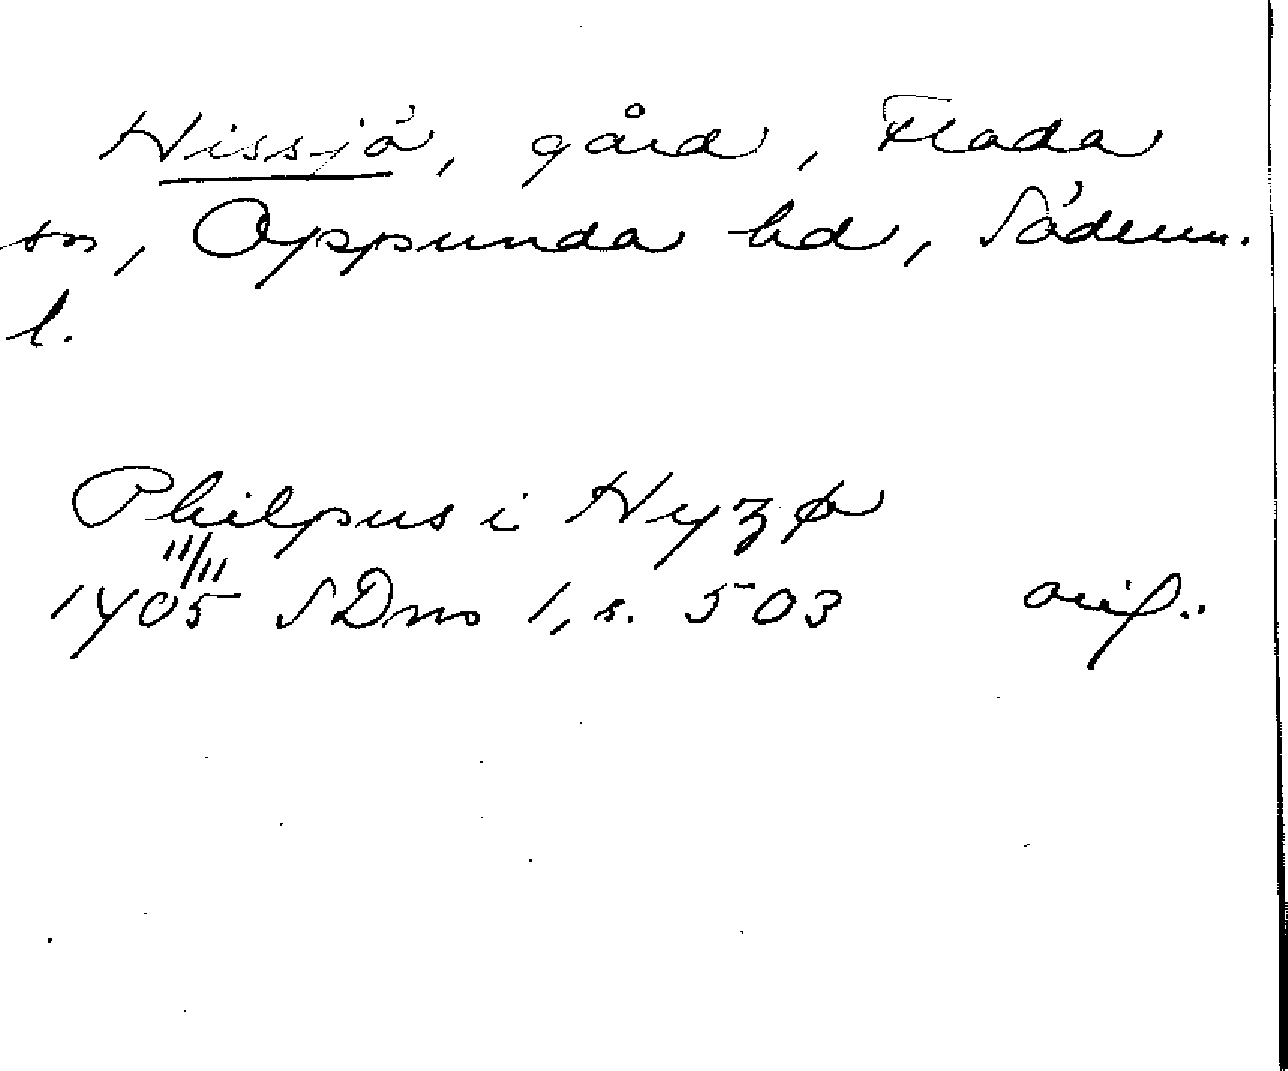 Hissjö, gård, Floda
sn, Oppunda hd, Söderm.
l.
Philpus i Hyzø
11/11
1405 SDns 1, s. 503 orig.